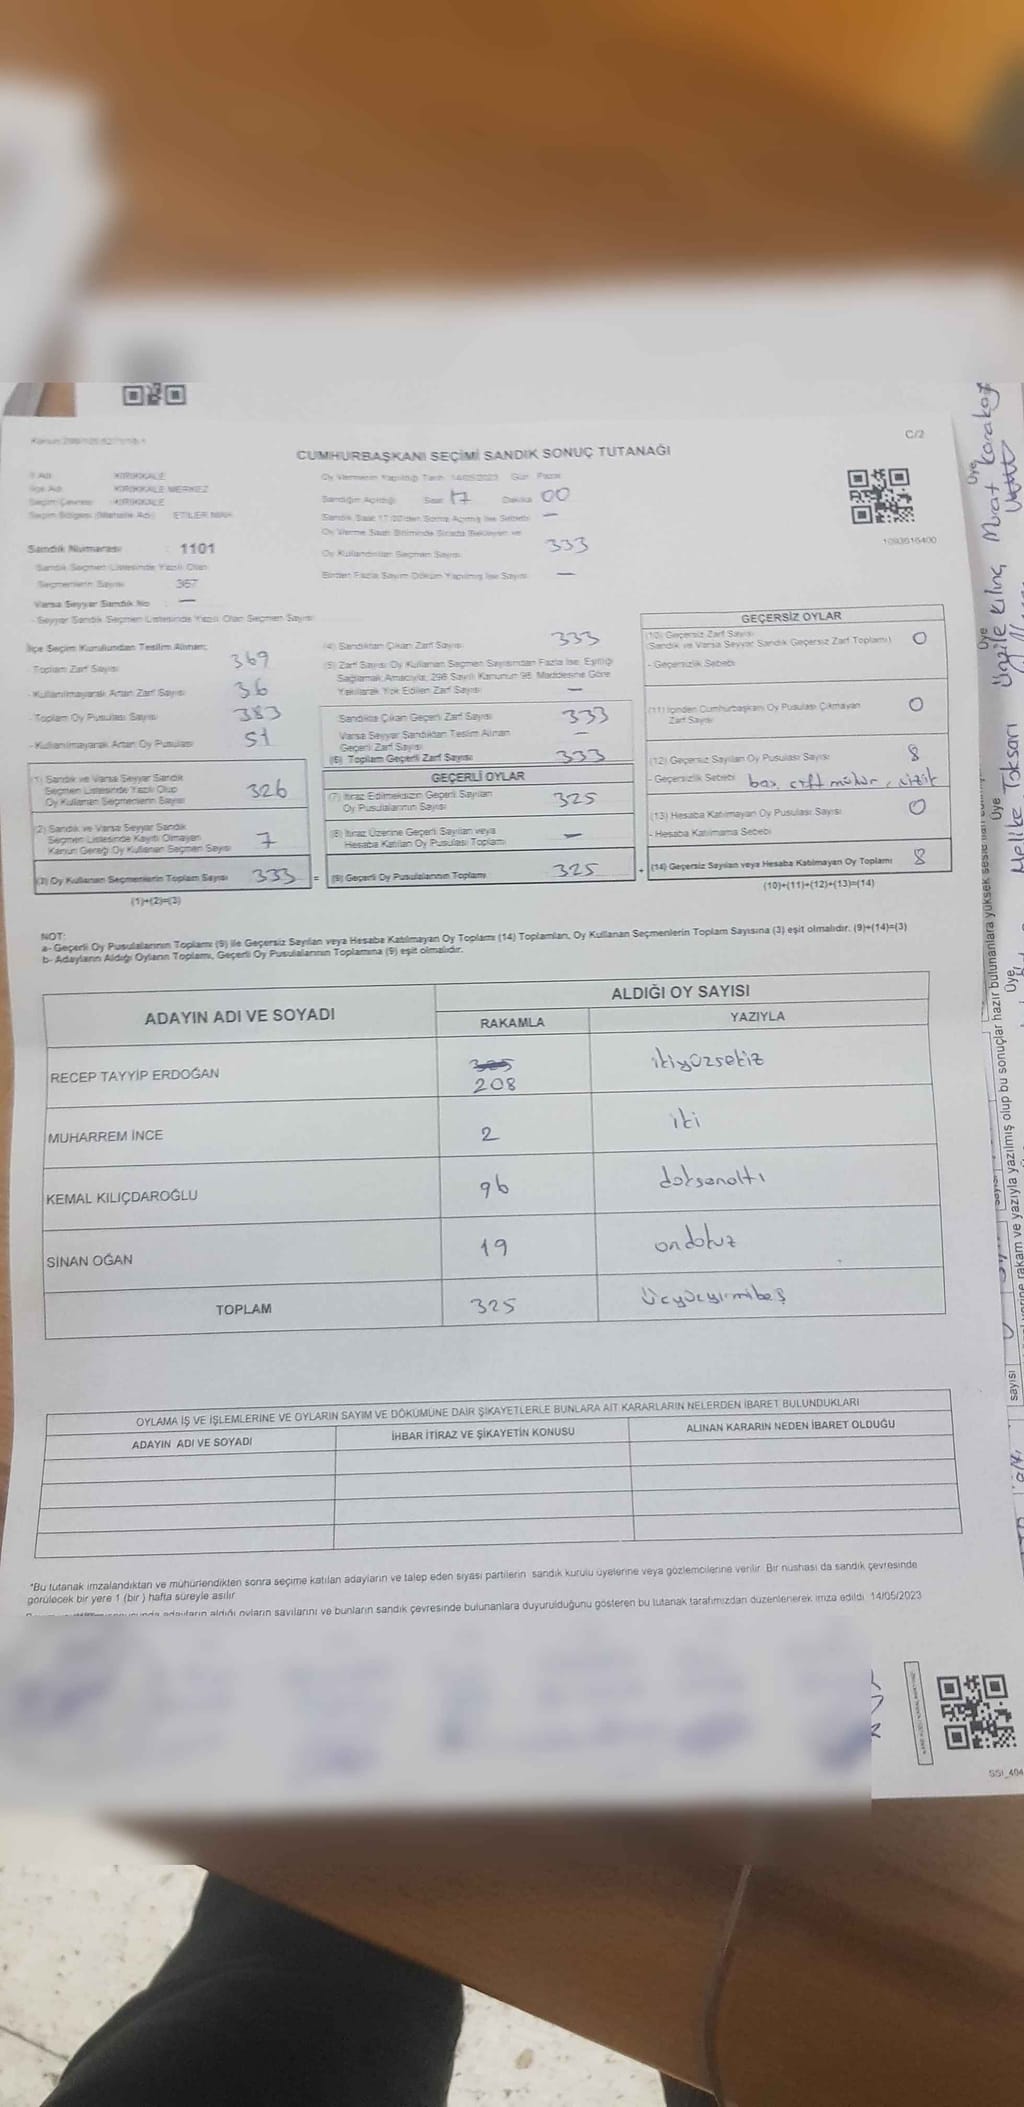 C/2
CUMHURBAŞKANI SEÇİMİ SANDIK SONUÇ TUTANAĞI
İl Adı KIRIKKALE
İlçe Adı KIRIKKALE MERKEZ
Seçim Çevresi KIRIKKALE
Seçim Bölgesi (Mahalle Adı) ETİLER MAH.
Sandık Numarası : 1101
Sandık Seçmen Listesinde Yazılı Olan
Seçmenlerin Sayısı 367
Varsa Seyyar Sandık No : —
- Seyyar Sandık Seçmen Listesinde Yazılı Olan Seçmen Sayısı
Oy Vermenin Yapıldığı Tarih 14/05/2023 Gün Pazar
Sandığın Açıldığı Saat 17 Dakika 00
Sandık Saat 17:00'den Sonra Açılmış İse Sebebi —
Oy Verme Saati Bitiminde Sırada Bekleyen ve
Oy Kullandırılan Seçmen Sayısı 333
Birden Fazla Sayım Döküm Yapılmış İse Sayısı —
1093616400
İlçe Seçim Kurulundan Teslim Alınan;
- Toplam Zarf Sayısı 369
- Kullanılmayarak Artan Zarf Sayısı 36
- Toplam Oy Pusulası Sayısı 383
- Kullanılmayarak Artan Oy Pusulası 51
(1) Sandık ve Varsa Seyyar Sandık
Seçmen Listesinde Yazılı Olup
Oy Kullanan Seçmenlerin Sayısı 326
(2) Sandık ve Varsa Seyyar Sandık
Seçmen Listesinde Kayıtlı Olmayan
Kanun Gereği Oy Kullanan Seçmen Sayısı 7
(3) Oy Kullanan Seçmenlerin Toplam Sayısı 333 =
(1)+(2)=(3)
(4) Sandıktan Çıkan Zarf Sayısı 333
(5) Zarf Sayısı Oy Kullanan Seçmen Sayısından Fazla İse, Eşitliği
Sağlamak Amacıyla, 298 Sayılı Kanunun 98. Maddesine Göre
Yakılarak Yok Edilen Zarf Sayısı —
Sandıkta Çıkan Geçerli Zarf Sayısı 333
Varsa Seyyar Sandıktan Teslim Alınan
Geçerli Zarf Sayısı —
(6) Toplam Geçerli Zarf Sayısı 333
GEÇERLİ OYLAR
(7) İtiraz Edilmeksizin Geçerli Sayılan
Oy Pusulalarının Sayısı 325
(8) İtiraz Üzerine Geçerli Sayılan veya
Hesaba Katılan Oy Pusulası Toplamı —
(9) Geçerli Oy Pusulalarının Toplamı 325 +
GEÇERSİZ OYLAR
(10) Geçersiz Zarf Sayısı
(Sandık ve Varsa Seyyar Sandık Geçersiz Zarf Toplamı) 0
- Geçersizlik Sebebi
(11) İçinden Cumhurbaşkanı Oy Pusulası Çıkmayan
Zarf Sayısı 0
(12) Geçersiz Sayılan Oy Pusulası Sayısı 8
- Geçersizlik Sebebi boş, çift mühür, çizik
(13) Hesaba Katılmayan Oy Pusulası Sayısı 0
- Hesaba Katılmama Sebebi
(14) Geçersiz Sayılan veya Hesaba Katılmayan Oy Toplamı 8
(10)+(11)+(12)+(13)=(14)
NOT:
a- Geçerli Oy Pusulalarının Toplamı (9) ile Geçersiz Sayılan veya Hesaba Katılmayan Oy Toplamı (14) Toplamları, Oy Kullanan Seçmenlerin Toplam Sayısına (3) eşit olmalıdır. (9)+(14)=(3)
b- Adayların Aldığı Oyların Toplamı, Geçerli Oy Pusulalarının Toplamına (9) eşit olmalıdır.
ADAYIN ADI VE SOYADI
ALDIĞI OY SAYISI
RAKAMLA YAZIYLA
RECEP TAYYİP ERDOĞAN 325 208 ikiyüzsekiz
MUHARREM İNCE 2 iki
KEMAL KILIÇDAROĞLU 96 doksanaltı
SİNAN OĞAN 19 ondokuz
TOPLAM 325 üçyüzyirmibeş
OYLAMA İŞ VE İŞLEMLERİNE VE OYLARIN SAYIM VE DÖKÜMÜNE DAİR ŞİKAYETLERLE BUNLARA AİT KARARLARIN NELERDEN İBARET BULUNDUKLARI
ADAYIN ADI VE SOYADI İHBAR İTİRAZ VE ŞİKAYETİN KONUSU ALINAN KARARIN NEDEN İBARET OLDUĞU
*Bu tutanak imzalandıktan ve mühürlendikten sonra seçime katılan adayların ve talep eden siyasi partilerin sandık kurulu üyelerine veya gözlemcilerine verilir. Bir nüshası da sandık çevresinde
görülecek bir yere 1 (bir) hafta süreyle asılır
adayların aldığı oyların sayılarını ve bunların sandık çevresinde bulunanlara duyurulduğunu gösteren bu tutanak tarafımızdan düzenlenerek imza edildi. 14/05/2023
SSI_404
Üye
Murat Karakoç
Üye
Kılınç
Üye
Melike Toksarı
Üye
rakam ve yazıyla yazılmış olup bu sonuçlar hazır bulunanlara yüksek sesle
sayısı